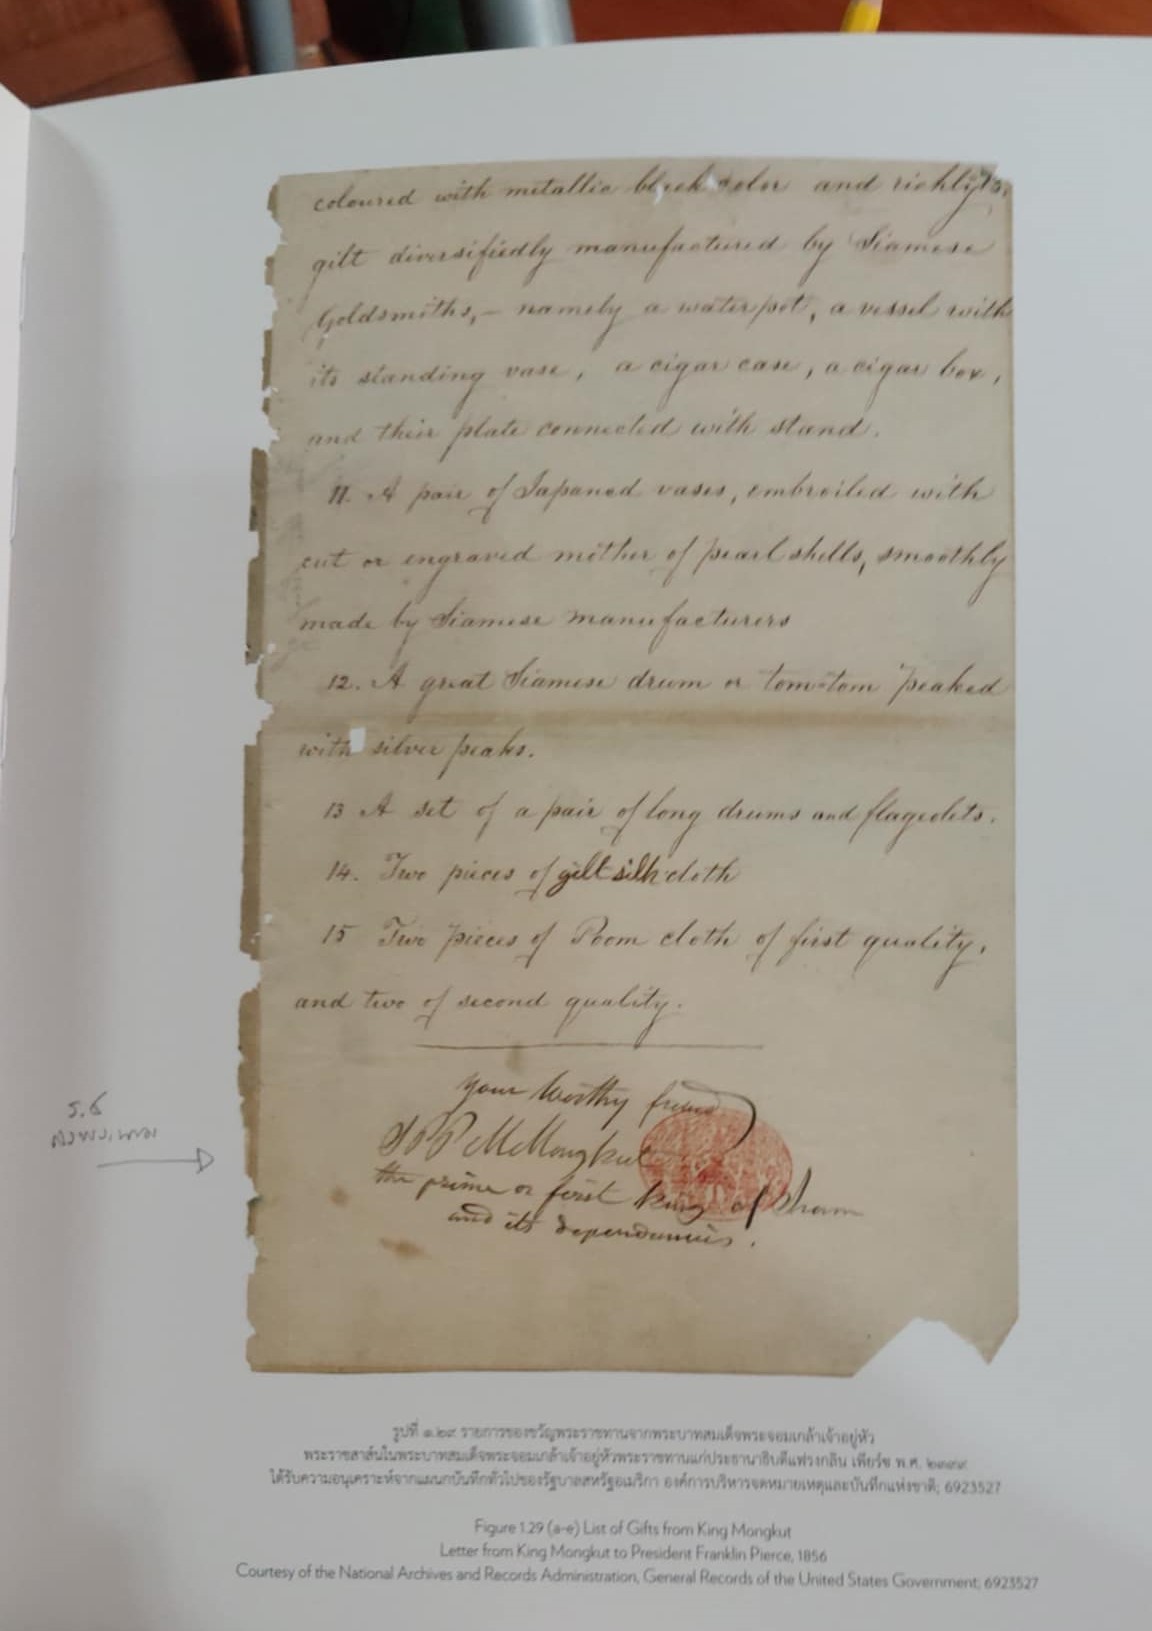 coloured with metallic black color and richly
gilt diversifiedly manufactured by Siamese
Goldsmiths, – namely a water pot, a vessel with
its standing vase, a cigar case, a cigar box,
and their plate connected with stand.
11. A pair of Japaned vases, embroiled with
cut or engraved mother of pearl shells, smoothly
made by Siamese manufacturers
12. A great Siamese drum or tom=tom peaked
with silver peaks.
13 A set of a pair of long drums and flageolets.
14. Two pieces of gilt silk cloth
15 Two pieces of Poom cloth of first quality,
and two of second quality.
your worthy friend
S P P M Mongkut
the prime or first king of Siam
and its dependencies.
ร.๔
รูปที่ ๑.๒๙ รายการของขวัญพระราชทานจากพระบาทสมเด็จพระจอมเกล้าเจ้าอยู่หัว
พระราชสาส์นในพระบาทสมเด็จพระจอมเกล้าเจ้าอยู่หัวพระราชทานแก่ประธานาธิบดีแฟรงกลิน เพียร์ซ พ.ศ. ๒๓๙๙
ได้รับความอนุเคราะห์จากแผนกบันทึกทั่วไปของรัฐบาลสหรัฐอเมริกา องค์การบริหารจดหมายเหตุและบันทึกแห่งชาติ; 6923527
Figure 1.29 (a-e) List of Gifts from King Mongkut
Letter from King Mongkut to President Franklin Pierce, 1856
Courtesy of the National Archives and Records Administration, General Records of the United States Government; 6923527